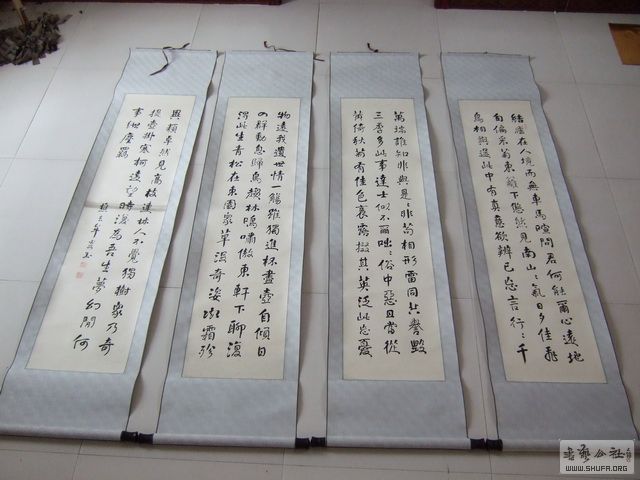 結廬在人境而無車馬喧問君何能爾心遠地
自偏采菊東籬下悠然見南山〻氣日夕佳飛
鳥相與還此中有真意欲辨已忘言行〻千
萬端誰知非與是〻非苟相形雷同共譽毀
三季多此事達士似不爾〻俗中惡且當從
黃綺秋菊有佳色裛露掇其英泛此忘憂
物遠我遺世情一觴雖獨進杯盡壺自傾日
入群動息歸鳥趨林鳴嘯傲東軒下聊復
得此生青松在東園眾草沒奇姿凝霜殄
異類卓然見高枝連林人不覺獨樹眾乃奇
提壺掛寒柯遠望時復為吾生夢幻間何
事紲塵羈
WWW.SHUFA.ORG